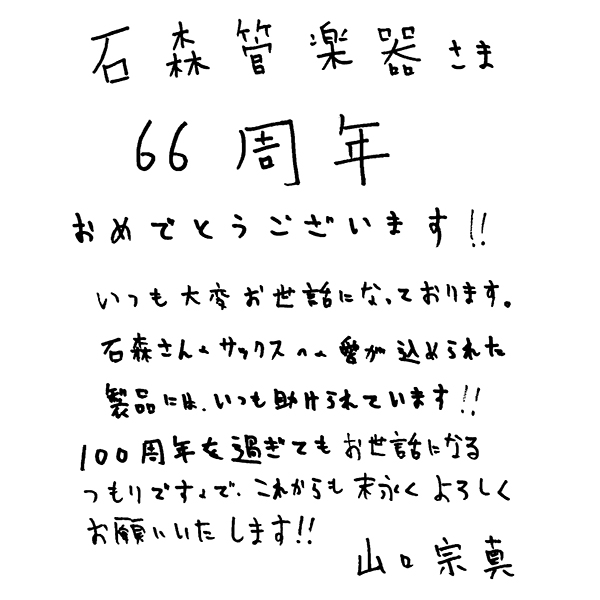 石森管楽器さま
66周年
おめでとうございます!!
いつも大変お世話になっております。
石森さんのサックスへの愛が込められた
製品には、いつも助けられています!!
100周年を過ぎてもお世話になる
つもりですので、これからも末永くよろしく
お願いいたします!!
山口宗真